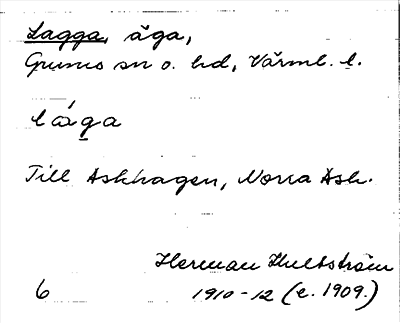 Lagga, äga,
Grums sn o. hd, Värml. l.
lága
Till Askhagen, Norra Ask.
Herman Hultström
6 1910-12 (e. 1909.)